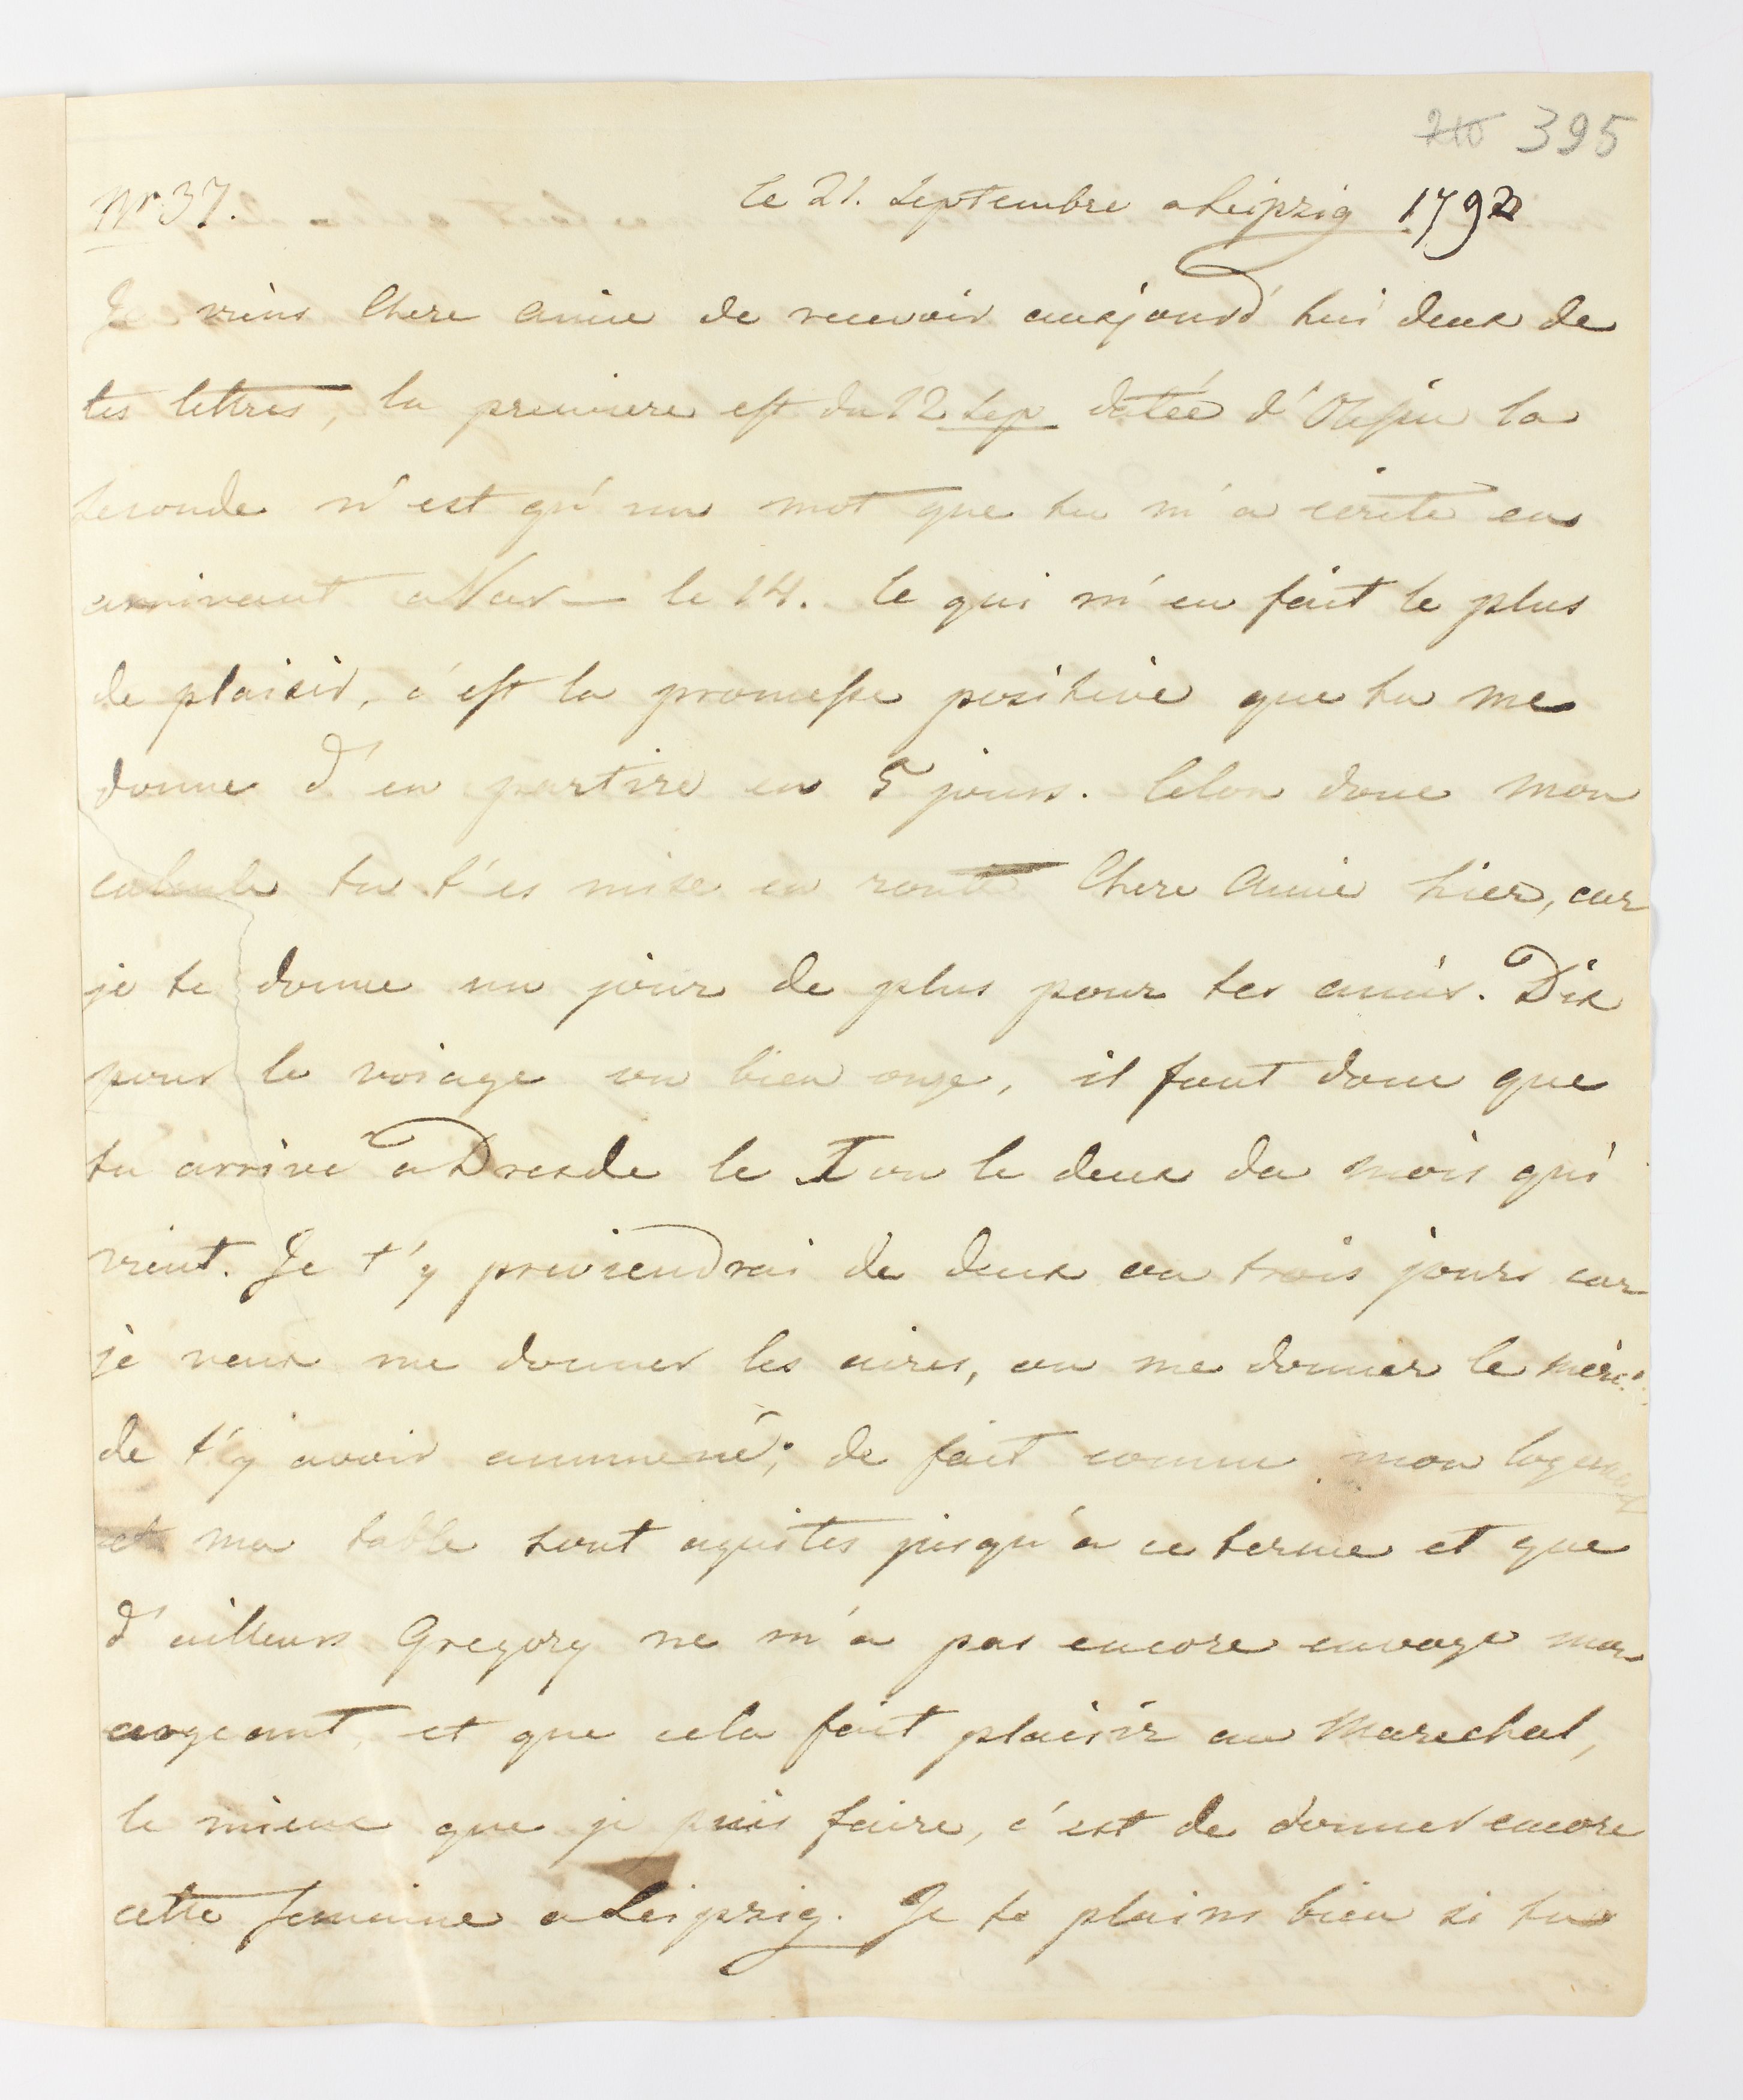 210 395
Nr. 37. le 21. Septembre a Leipzig 1792
Je viens Chere Amie de recevoir aujourd'hui deux de
tes lettres, la premiere est du 12 Sep datée d'Olesin la
seconde n'est qu'un mot que tu m'a écrite en
arrivant a Var— le 14. Ce qui m'en fait le plus
de plaisir, c'est la promesse positive que tu me
donne d'en partire en 5 jours. Celon donc mon
calcule tu t'es mise en route Chere Amie hier, car
je te donne un jour de plus pour tes amis. Dix
pour le voiage ou bien onze, il faut donc que
tu arrive a Dresde le I ou le deux du mois qui
vient. Je t'y previendrai de deux ou trois jours car
je veux me donner les aires, ou me donner le meri:
de t'y avoir ammené; de fait comme mon logement
et ma table sont aquités jusqu'a ce terme et que
d'ailleurs Gregory ne m'a pas encore envoye mon
argeant, et que cela fait plaisir au Marechal,
le mieux que je puis faire, c'est de donner encore
cette semaine a Leipzig. Je te plains bien si tu